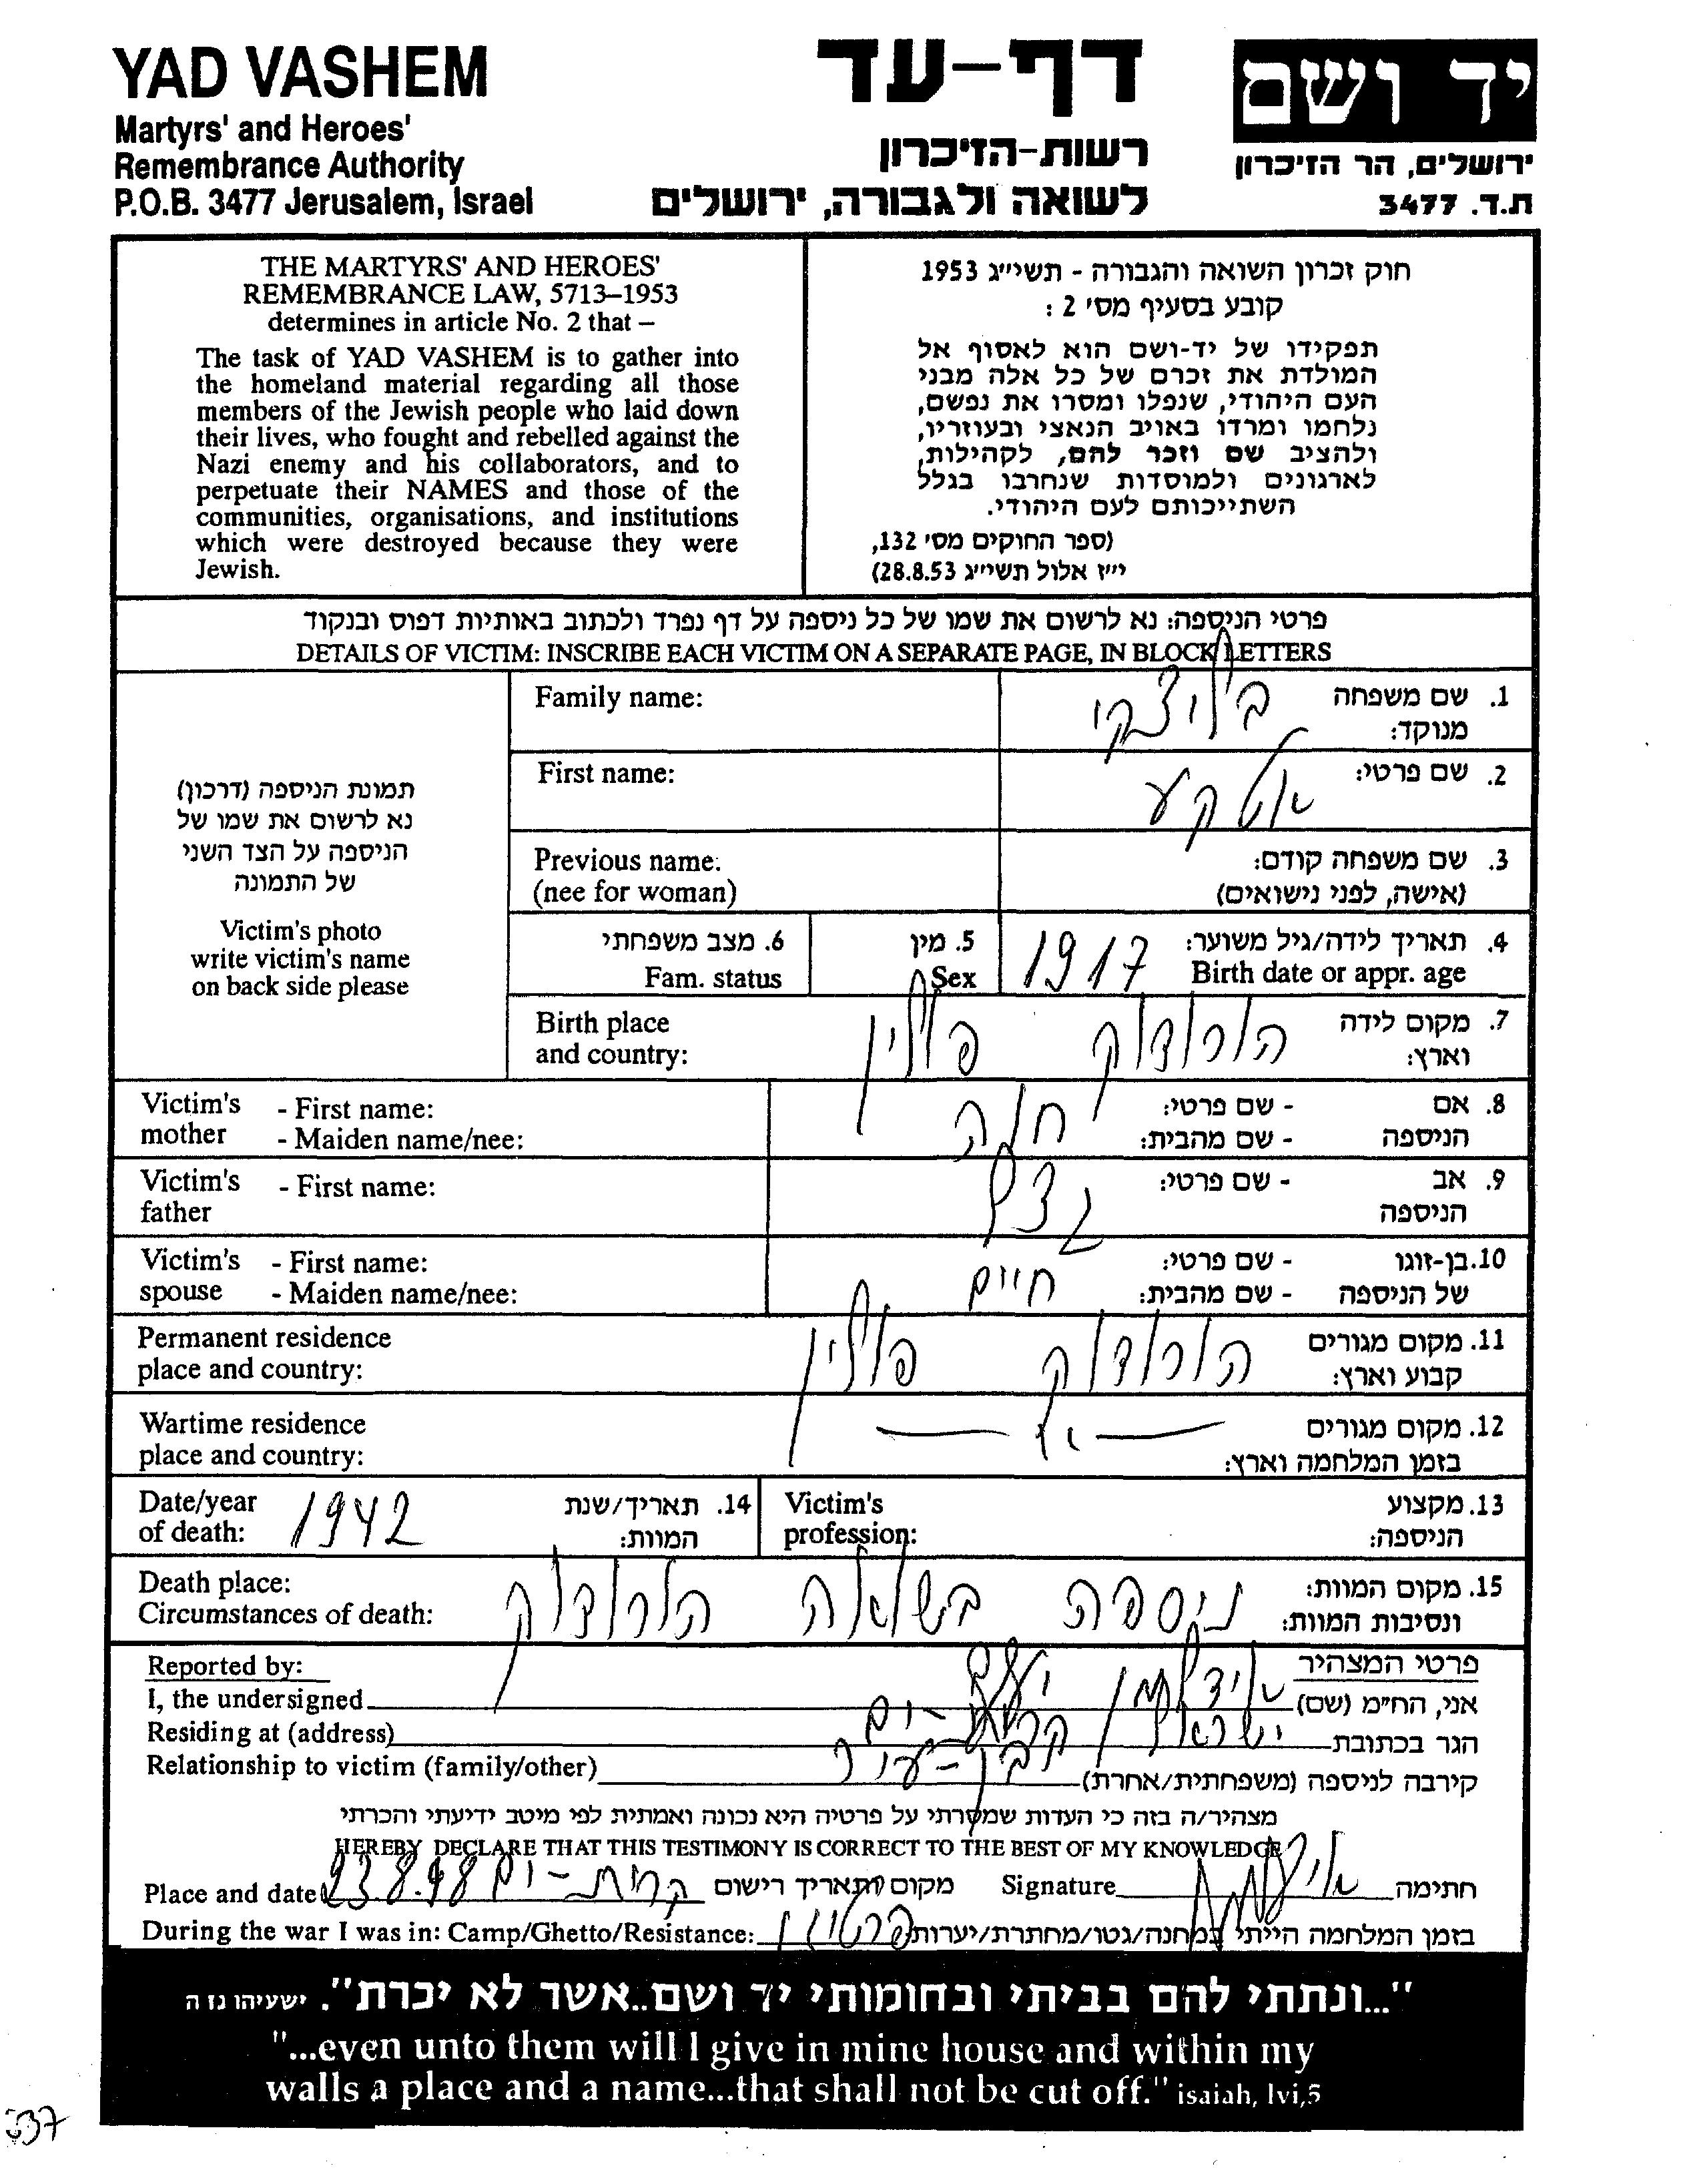 YAD VASHEM
Martyrs' and Heroes'
Remembrance Authority
P.O.B. 3477 Jerusalem, Israel
דף-עד
רשות-הזיכרון
לשואה ולגבורה, ירושלים
יד ושם
ירושלים, הר הזיכרון
ת.ד. 3477
THE MARTYRS' AND HEROES'
REMEMBRANCE LAW, 5713–1953
determines in article No. 2 that –
The task of YAD VASHEM is to gather into
the homeland material regarding all those
members of the Jewish people who laid down
their lives, who fought and rebelled against the
Nazi enemy and his collaborators, and to
perpetuate their NAMES and those of the
communities, organisations, and institutions
which were destroyed because they were
Jewish.
חוק זכרון השואה והגבורה - תשי״ג 1953
קובע בסעיף מס׳ 2 :
תפקידו של יד-ושם הוא לאסוף אל
המולדת את זכרם של כל אלה מבני
העם היהודי, שנפלו ומסרו את נפשם,
נלחמו ומרדו באויב הנאצי ובעוזריו,
ולהציב שם וזכר להם, לקהילות,
לארגונים ולמוסדות שנחרבו בגלל
השתייכותם לעם היהודי.
(ספר החוקים מס׳ 132,
י״ז אלול תשי״ג 28.8.53)
פרטי הניספה: נא לרשום את שמו של כל ניספה על דף נפרד ולכתוב באותיות דפוס ובנקוד
DETAILS OF VICTIM: INSCRIBE EACH VICTIM ON A SEPARATE PAGE, IN BLOCK LETTERS
תמונת הניספה (דרכון)
נא לרשום את שמו של
הניספה על הצד השני
של התמונה
Victim's photo
write victim's name
on back side please
Family name:
1. שם משפחה
מנוקד:
First name:
2. שם פרטי:
Previous name:
(nee for woman)
3. שם משפחה קודם:
(אישה, לפני נישואים)
4. תאריך לידה/גיל משוער: 1917
Birth date or appr. age
5. מין
Sex
6. מצב משפחתי
Fam. status
Birth place
and country:
הורודוק פולין
7. מקום לידה
וארץ:
Victim's mother - First name:
- Maiden name/nee:
חוה
8. אם הניספה - שם פרטי:
- שם מהבית:
Victim's father - First name:
9. אב הניספה - שם פרטי:
Victim's spouse - First name:
- Maiden name/nee:
חיים
10. בן-זוגו של הניספה - שם פרטי:
- שם מהבית:
Permanent residence
place and country:
הורודוק פולין
11. מקום מגורים
קבוע וארץ:
Wartime residence
place and country:
12. מקום מגורים
בזמן המלחמה וארץ:
Date/year
of death: 1942
14. תאריך/שנת
המוות:
Victim's
profession:
13. מקצוע
הניספה:
Death place:
Circumstances of death:
ניספה בשואה הורודוק
15. מקום המוות:
ונסיבות המוות:
Reported by:
פרטי המצהיר
I, the undersigned
אני, הח״מ (שם)
Residing at (address)
הגר בכתובת
Relationship to victim (family/other)
בן-עיר
קירבה לניספה (משפחתית/אחרת)
מצהיר/ה בזה כי העדות שמסרתי על פרטיה היא נכונה ואמתית לפי מיטב ידיעתי והכרתי
HEREBY DECLARE THAT THIS TESTIMONY IS CORRECT TO THE BEST OF MY KNOWLEDGE
Place and date 23.8.98 קרית-ים מקום ותאריך רישום
Signature
חתימה
During the war I was in: Camp/Ghetto/Resistance:
בזמן המלחמה הייתי במחנה/גטו/מחתרת/יערות
"...ונתתי להם בביתי ובחומותי יד ושם..אשר לא יכרת". ישעיהו נז ה
"...even unto them will I give in mine house and within my
walls a place and a name...that shall not be cut off." isaiah, lvi,5